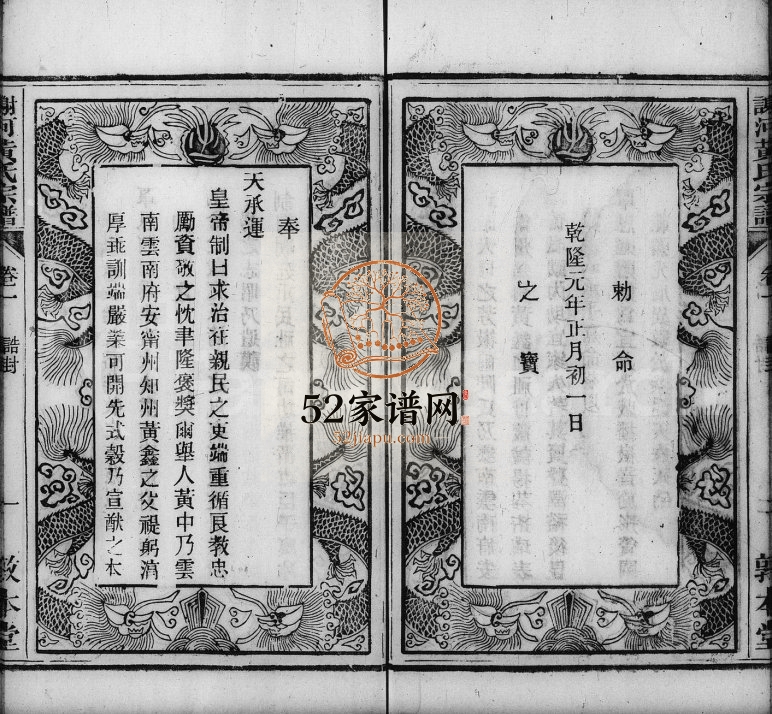 勅命
之寶
乾隆元年正月初一日
謝河黃氏宗譜
卷一
誥封
敦本堂
奉
天承運
皇帝制曰求治在親民之吏端重循良教忠
勵資敬之忱聿隆褒獎爾舉人黃中乃雲
南雲南府安甯州知州黃鑫之父禔躬淯
厚垂訓端嚴業可開先式穀乃宣猷之本
謝河黃氏宗譜
卷一
誥封
一
敦本堂
52家谱网
52jiapu.com